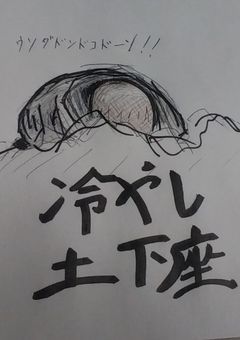 ウソダドンドコドーン!!
冷やし
土下座